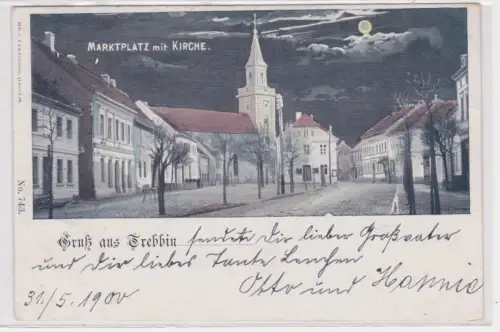 MARKTPLATZ mit KIRCHE.
No. 743.
Gruß aus Trebbin sendete Dir lieber Großvater
und Dir liebes Tante Lenchen
Otto und Hannie
31/5. 1900